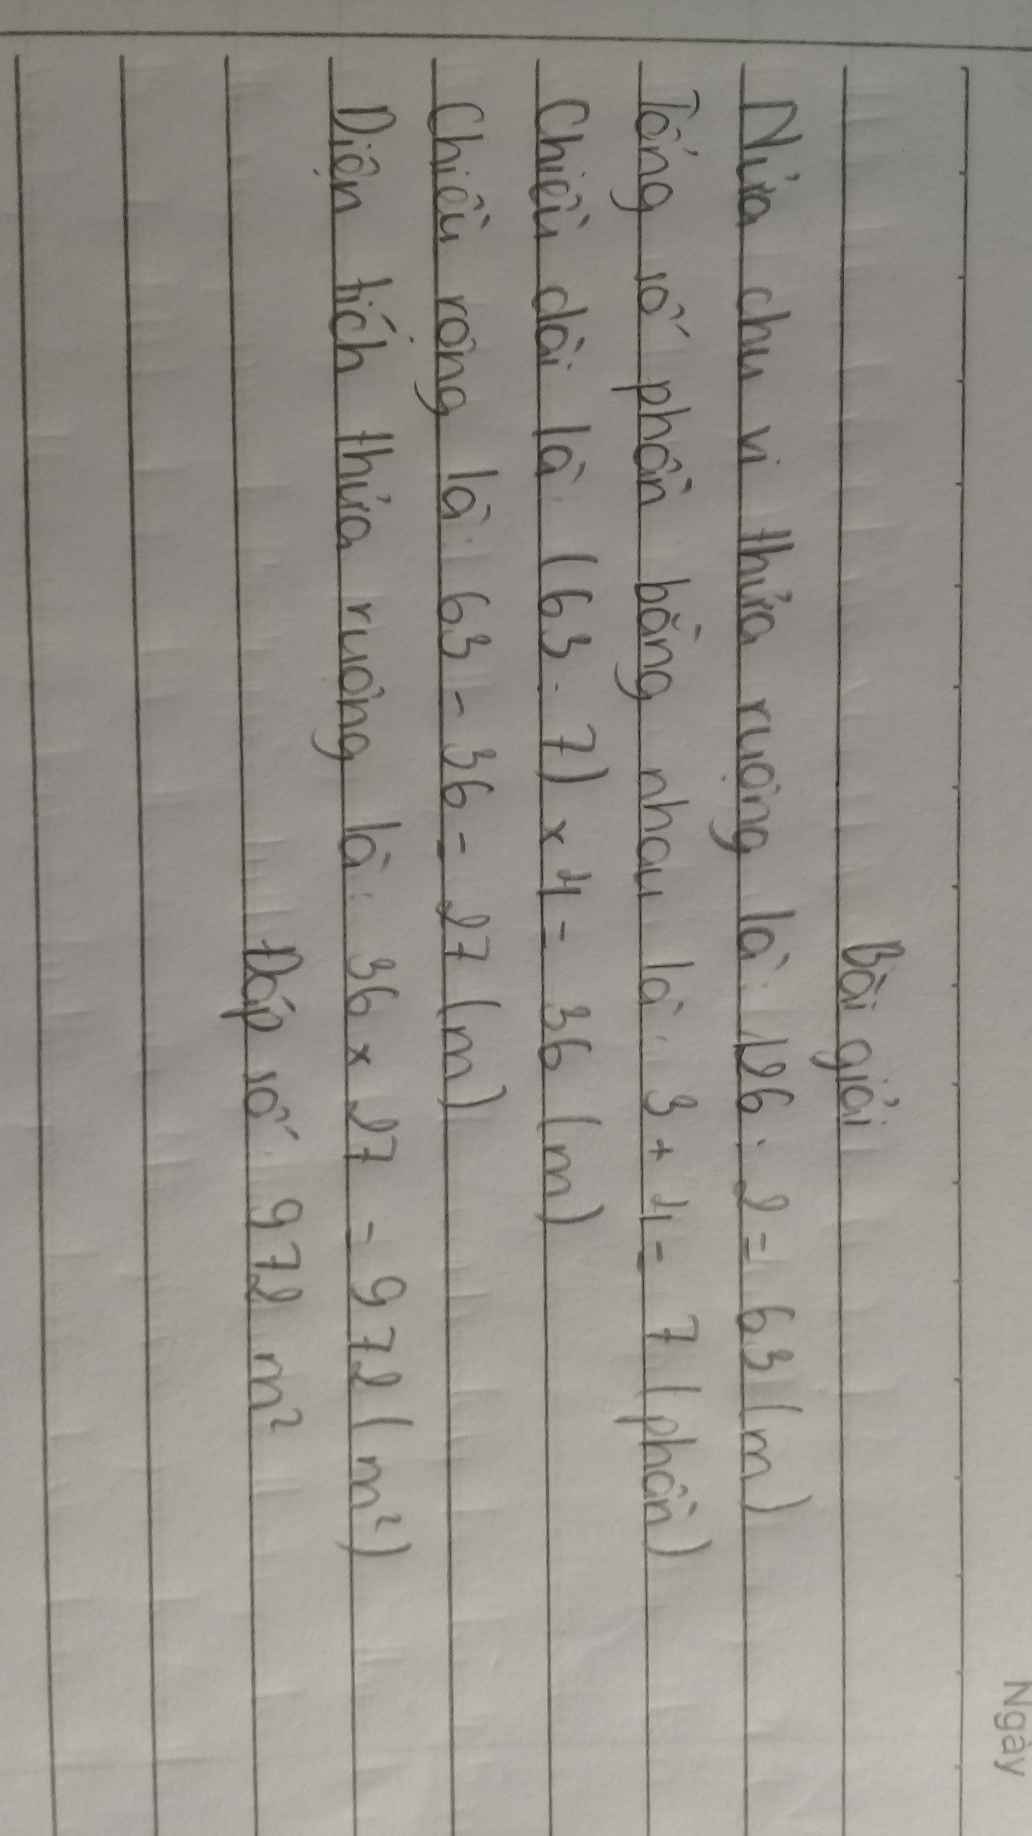 Ngày
Bài giải
Nửa chu vi thửa ruộng là: 126 : 2 = 63 (m)
Tổng số phần bằng nhau là: 3 + 4 = 7 (phần)
Chiều dài là: (63 : 7) x 4 = 36 (m)
Chiều rộng là: 63 - 36 = 27 (m)
Diện tích thửa ruộng là: 36 x 27 = 972 (m²)
Đáp số: 972 m²